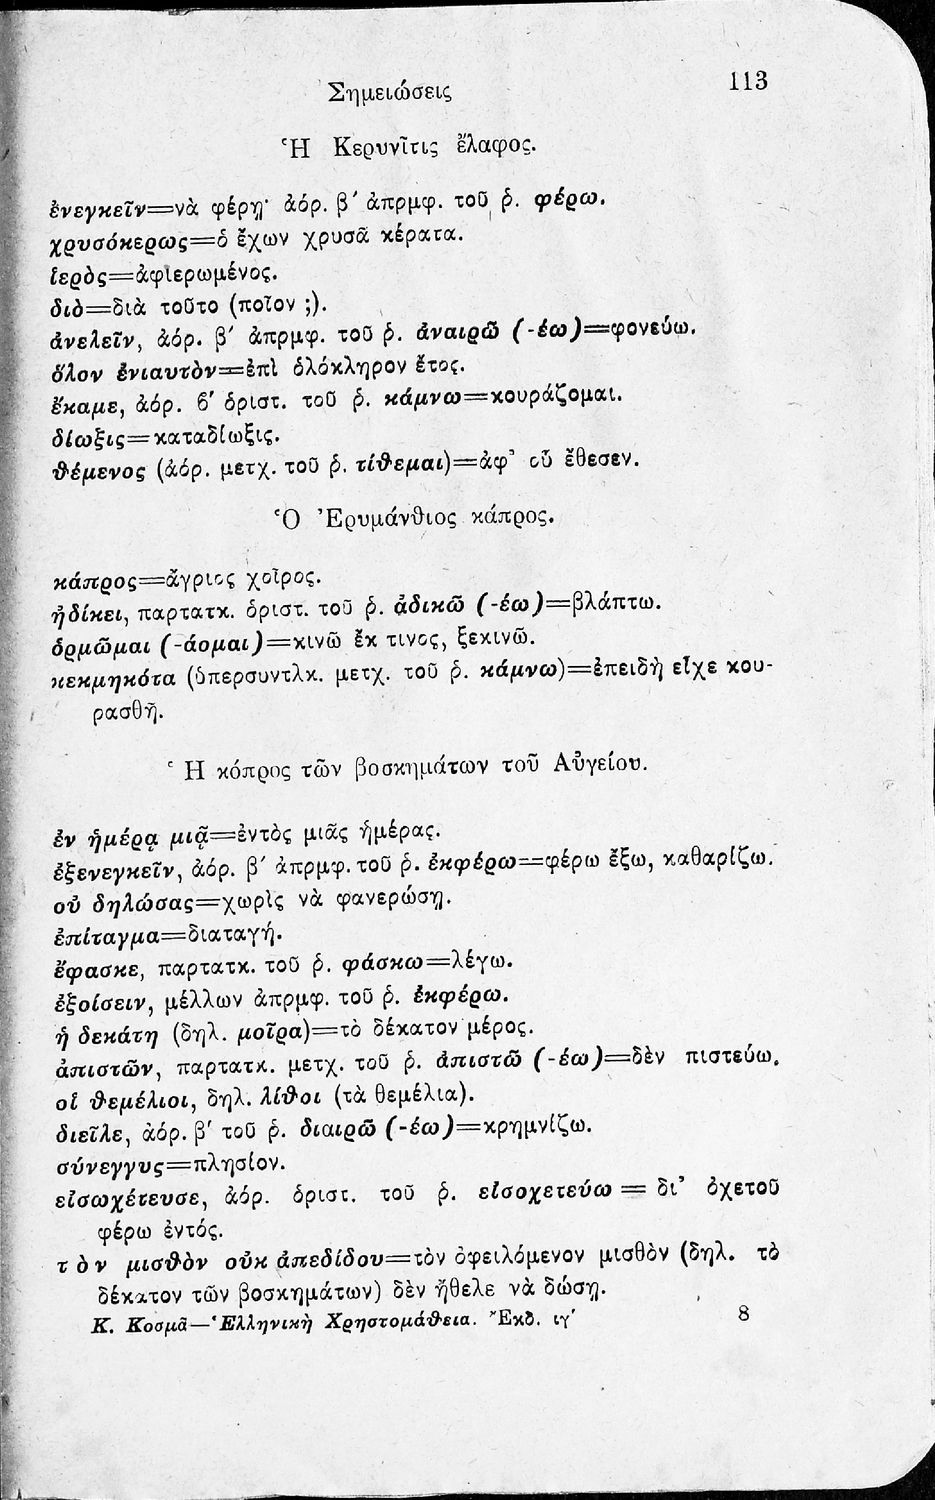 Σημειώσεις
113
Ἡ Κερυνῖτις ἔλαφος.
ἐνεγκεῖν=νὰ φέρῃ· ἀόρ. β′ ἀπρμφ. τοῦ ῥ. φέρω.
χρυσόκερως=ὁ ἔχων χρυσᾶ κέρατα.
ἱερὸς=ἀφιερωμένος.
διὸ=διὰ τοῦτο (ποῖον ;).
ἀνελεῖν, ἀόρ. β′ ἀπρμφ. τοῦ ῥ. ἀναιρῶ (-έω)=φονεύω.
ὅλον ἐνιαυτὸν=ἐπὶ ὁλόκληρον ἔτος.
ἔκαμε, ἀόρ. β′ ὁριστ. τοῦ ῥ. κάμνω=κουράζομαι.
δίωξις=καταδίωξις.
θέμενος (ἀόρ. μετχ. τοῦ ῥ. τίθεμαι)=ἀφ’ οὗ ἔθεσεν.
Ὁ Ἐρυμάνθιος κάπρος.
κάπρος=ἄγριος χοῖρος.
ἠδίκει, παρτατκ. ὁριστ. τοῦ ῥ. ἀδικῶ (-έω)=βλάπτω.
ὁρμῶμαι (-άομαι)=κινῶ ἔκ τινος, ξεκινῶ.
κεκμηκότα (ὑπερσυντλκ. μετχ. τοῦ ῥ. κάμνω)=ἐπειδὴ εἶχε κου-
ρασθῆ.
Ἡ κόπρος τῶν βοσκημάτων τοῦ Αὐγείου.
ἐν ἡμέρᾳ μιᾷ=ἐντὸς μιᾶς ἡμέρας.
ἐξενεγκεῖν, ἀόρ. β′ ἀπρμφ. τοῦ ῥ. ἐκφέρω=φέρω ἔξω, καθαρίζω.
οὐ δηλώσας=χωρὶς νὰ φανερώσῃ.
ἐπίταγμα=διαταγή.
ἔφασκε, παρτατκ. τοῦ ῥ. φάσκω=λέγω.
ἐξοίσειν, μέλλων ἀπρμφ. τοῦ ῥ. ἐκφέρω.
ἡ δεκάτη (δηλ. μοῖρα)=τὸ δέκατον μέρος.
ἀπιστῶν, παρτατκ. μετχ. τοῦ ῥ. ἀπιστῶ (-έω)=δὲν πιστεύω.
οἱ θεμέλιοι, δηλ. λίθοι (τὰ θεμέλια).
διεῖλε, ἀόρ. β′ τοῦ ῥ. διαιρῶ (-έω)=κρημνίζω.
σύνεγγυς=πλησίον.
εἰσωχέτευσε, ἀόρ. ὁριστ. τοῦ ῥ. εἰσοχετεύω = δι’ ὀχετοῦ
φέρω ἐντός.
τὸν μισθὸν οὐκ ἀπεδίδου=τὸν ὀφειλόμενον μισθὸν (δηλ. τὸ
δέκατον τῶν βοσκημάτων) δὲν ἤθελε νὰ δώσῃ.
Κ. Κοσμᾶ—Ἑλληνικὴ Χρηστομάθεια. Ἔκδ. ιγ′
8